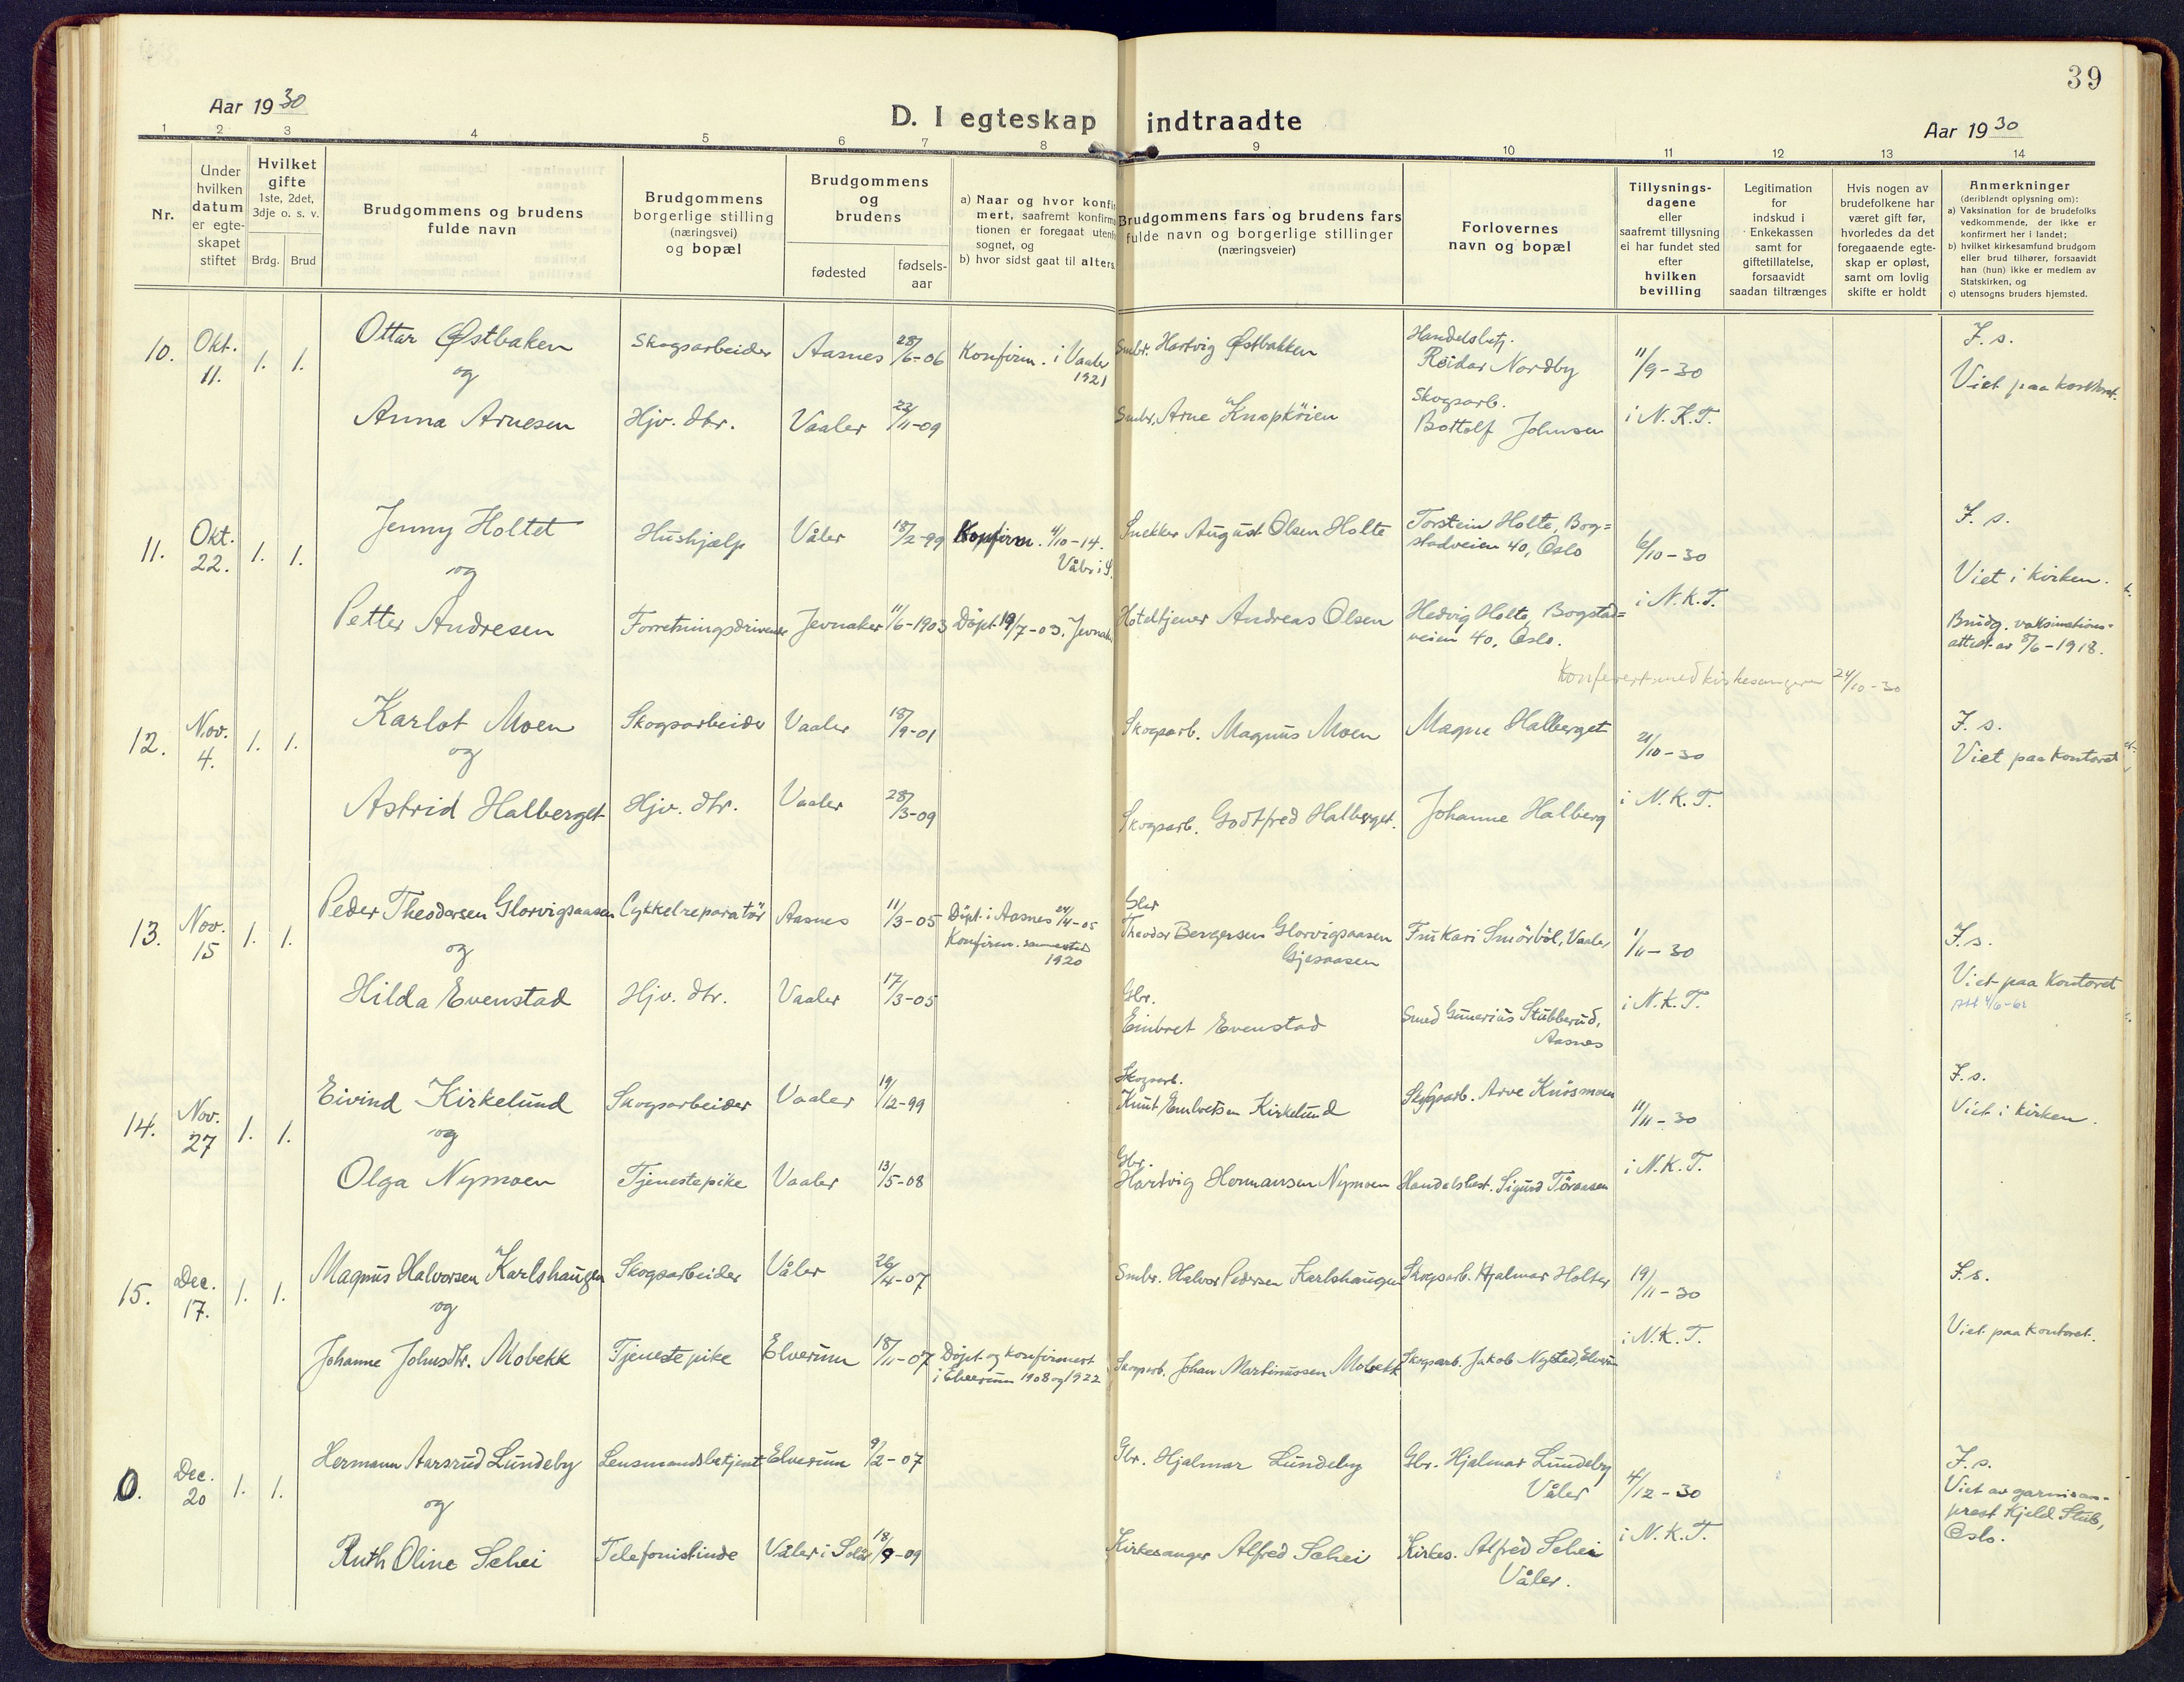 39
Aar 1930
D. I egteskap indtraadte
Aar 1930
1 2 3 4 5 6 7 8 9 10 11 12 13 14
Nr.
Under
hvilken
datum
er egte-
skapet
stiftet
Hvilket
gifte
1ste, 2det,
3dje o. s. v.
Brdg. Brud
Brudgommens og brudens
fulde navn
Brudgommens
borgerlige stilling
(næringsvei)
og bopæl
Brudgommens
og
brudens
fødested
fødsels-
aar
a) Naar og hvor konfir
mert, saafremt konfirma
tionen er foregaat utenfo
sognet, og
b) hvor sidst gaat til alters
Brudgommens fars og brudens fars
fulde navn og borgerlige stillinger
(næringsveier)
Forlovernes
navn og bopæl
Tillysnings-
dagene
eller
saafremt tillysning
ei har fundet sted
efter
hvilken
bevilling
Legitimation
for
indskud i
Enkekassen
samt for
giftetillatelse,
forsaavidt
saadan tiltrænges
Hvis nogen av
brudefolkene har
været gift før,
hvorledes da det
foregaaende egte-
skap er opløst,
samt om lovlig
skifte er holdt
Anmerkninger
(deriblandt oplysning om):
a) Vaksination for de brudefolks
vedkommende, der ikke er
konfirmert her i landet;
b) hvilket kirkesamfund brudgom
eller brud tilhører, forsaavidt
han (hun) ikke er medlem av
Statskirken, og
c) utensogns bruders hjemsted.
10. Okt. 11. 1. 1.
Ottar Østbaken Skogsarbeider Aasnes 28/6-06 Konfirm. i Vaaler 1921 Smbr. Hartvig Østbakken Handelsbetj. Reidar Nordby 11/9-30 F. s.
og
Viet paa kontoret.
Anna Arnesen Hjv. dtr. Vaaler 22/11-09 Smbr. Arne Knapkøien Skogsarb. Bottolf Johnsen i N.K.T.
11. Okt. 22. 1. 1.
Jenny Holtet Hushjælp Våler 18/2-99 Konfirm. 4/10-14. Våler i S. Snekker August Olsen Holte Torstein Holte, Bog=
stadveien 40, Oslo 6/10-30 F. s.
og
Viet i kirken.
Petter Andresen Forretningsdrivende Jevnaker 11/6-1903 Döpt 19/7-03. Jevnak. Hoteltjener Andreas Olsen Hedvig Holte, Bogstad=
veien 40, Oslo. i N.K.T.
Brudg. vaksinations-
attest av 8/6-1918.
Konferert med kirkesangeren 24/10-30
12. Nov. 4. 1. 1.
Karlot Moen Skogsarbeider Vaaler 18/9-01 Skogsarb. Magnus Moen Magne Halberget 21/10-30 F. s.
og
Viet paa kontoret
Astrid Halberget Hjv. dtr. Vaaler 28/3-09 Skogsarb. Godtfred Halberget. Johanne Halberg i N.K.T.
13. Nov. 15 1. 1.
Peder Theodorsen Glorvigsaasen Cykkelreparatör Aasnes 11/3-05 Döpt i Aasnes 24/4-05
Konfirm. sammested
1920
Theodor Bergersen Glorvigsaasen
Gjesaasen
Fru Kari Smörböl, Vaaler 1/11-30 F. s.
og
Viet paa kontoret
Att 4/6-62
Hilda Evenstad Hjv. dtr. Vaaler 17/3-05 Gbr.
Embret Evenstad Smed Gunerius Stubberud,
Aasnes i N.K.T.
14. Nov. 27 1. 1.
Eivind Kirkelund Skogsarbeider Vaaler 19/12-99 Skogsarb.
Knut Embretsen Kirkelund Skogsarb. Arve Knösmoen 11/11-30 F. s.
og
Viet i kirken.
Olga Nymoen Tjenestepike Vaaler 13/5-08 Gbr.
Hartvig Hermansen Nymoen Handelsbest. Sigurd Töraasen i N.K.T.
15. Dec. 17. 1. 1.
Magnus Halvorsen Karlshaugen Skogsarbeider Våler 26/4-07 Smbr. Halvor Pedersen Karlshaugen Skogsarb. Hjalmar Holter 19/11-30 F. s.
og
Viet paa kontoret.
Johanne Johnsdtr. Mobekk Tjenestepike Elverum 18/11-07 Döpt og konfirmert
i Elverum 1908 og 1922 Skogsarb. Johan Martinussen Mobekk Skogsarb. Jakob Nysted, Elverum i N.K.T.
0. Dec. 20 1. 1.
Hermann Aarsrud Lundeby Lensmandsbetjent Elverum 9/2-07 Gbr. Hjalmar Lundeby Gbr. Hjalmar Lundeby
Våler 4/12-30 F. s.
og
Viet av garnisons-
prest Kjeld Stub,
Oslo.
Ruth Oline Schei Telefonistinde Våler i Solör 18/9-09 Kirkesanger Alfred Schei Kirkes. Alfred Schei
Våler. i N.K.T.